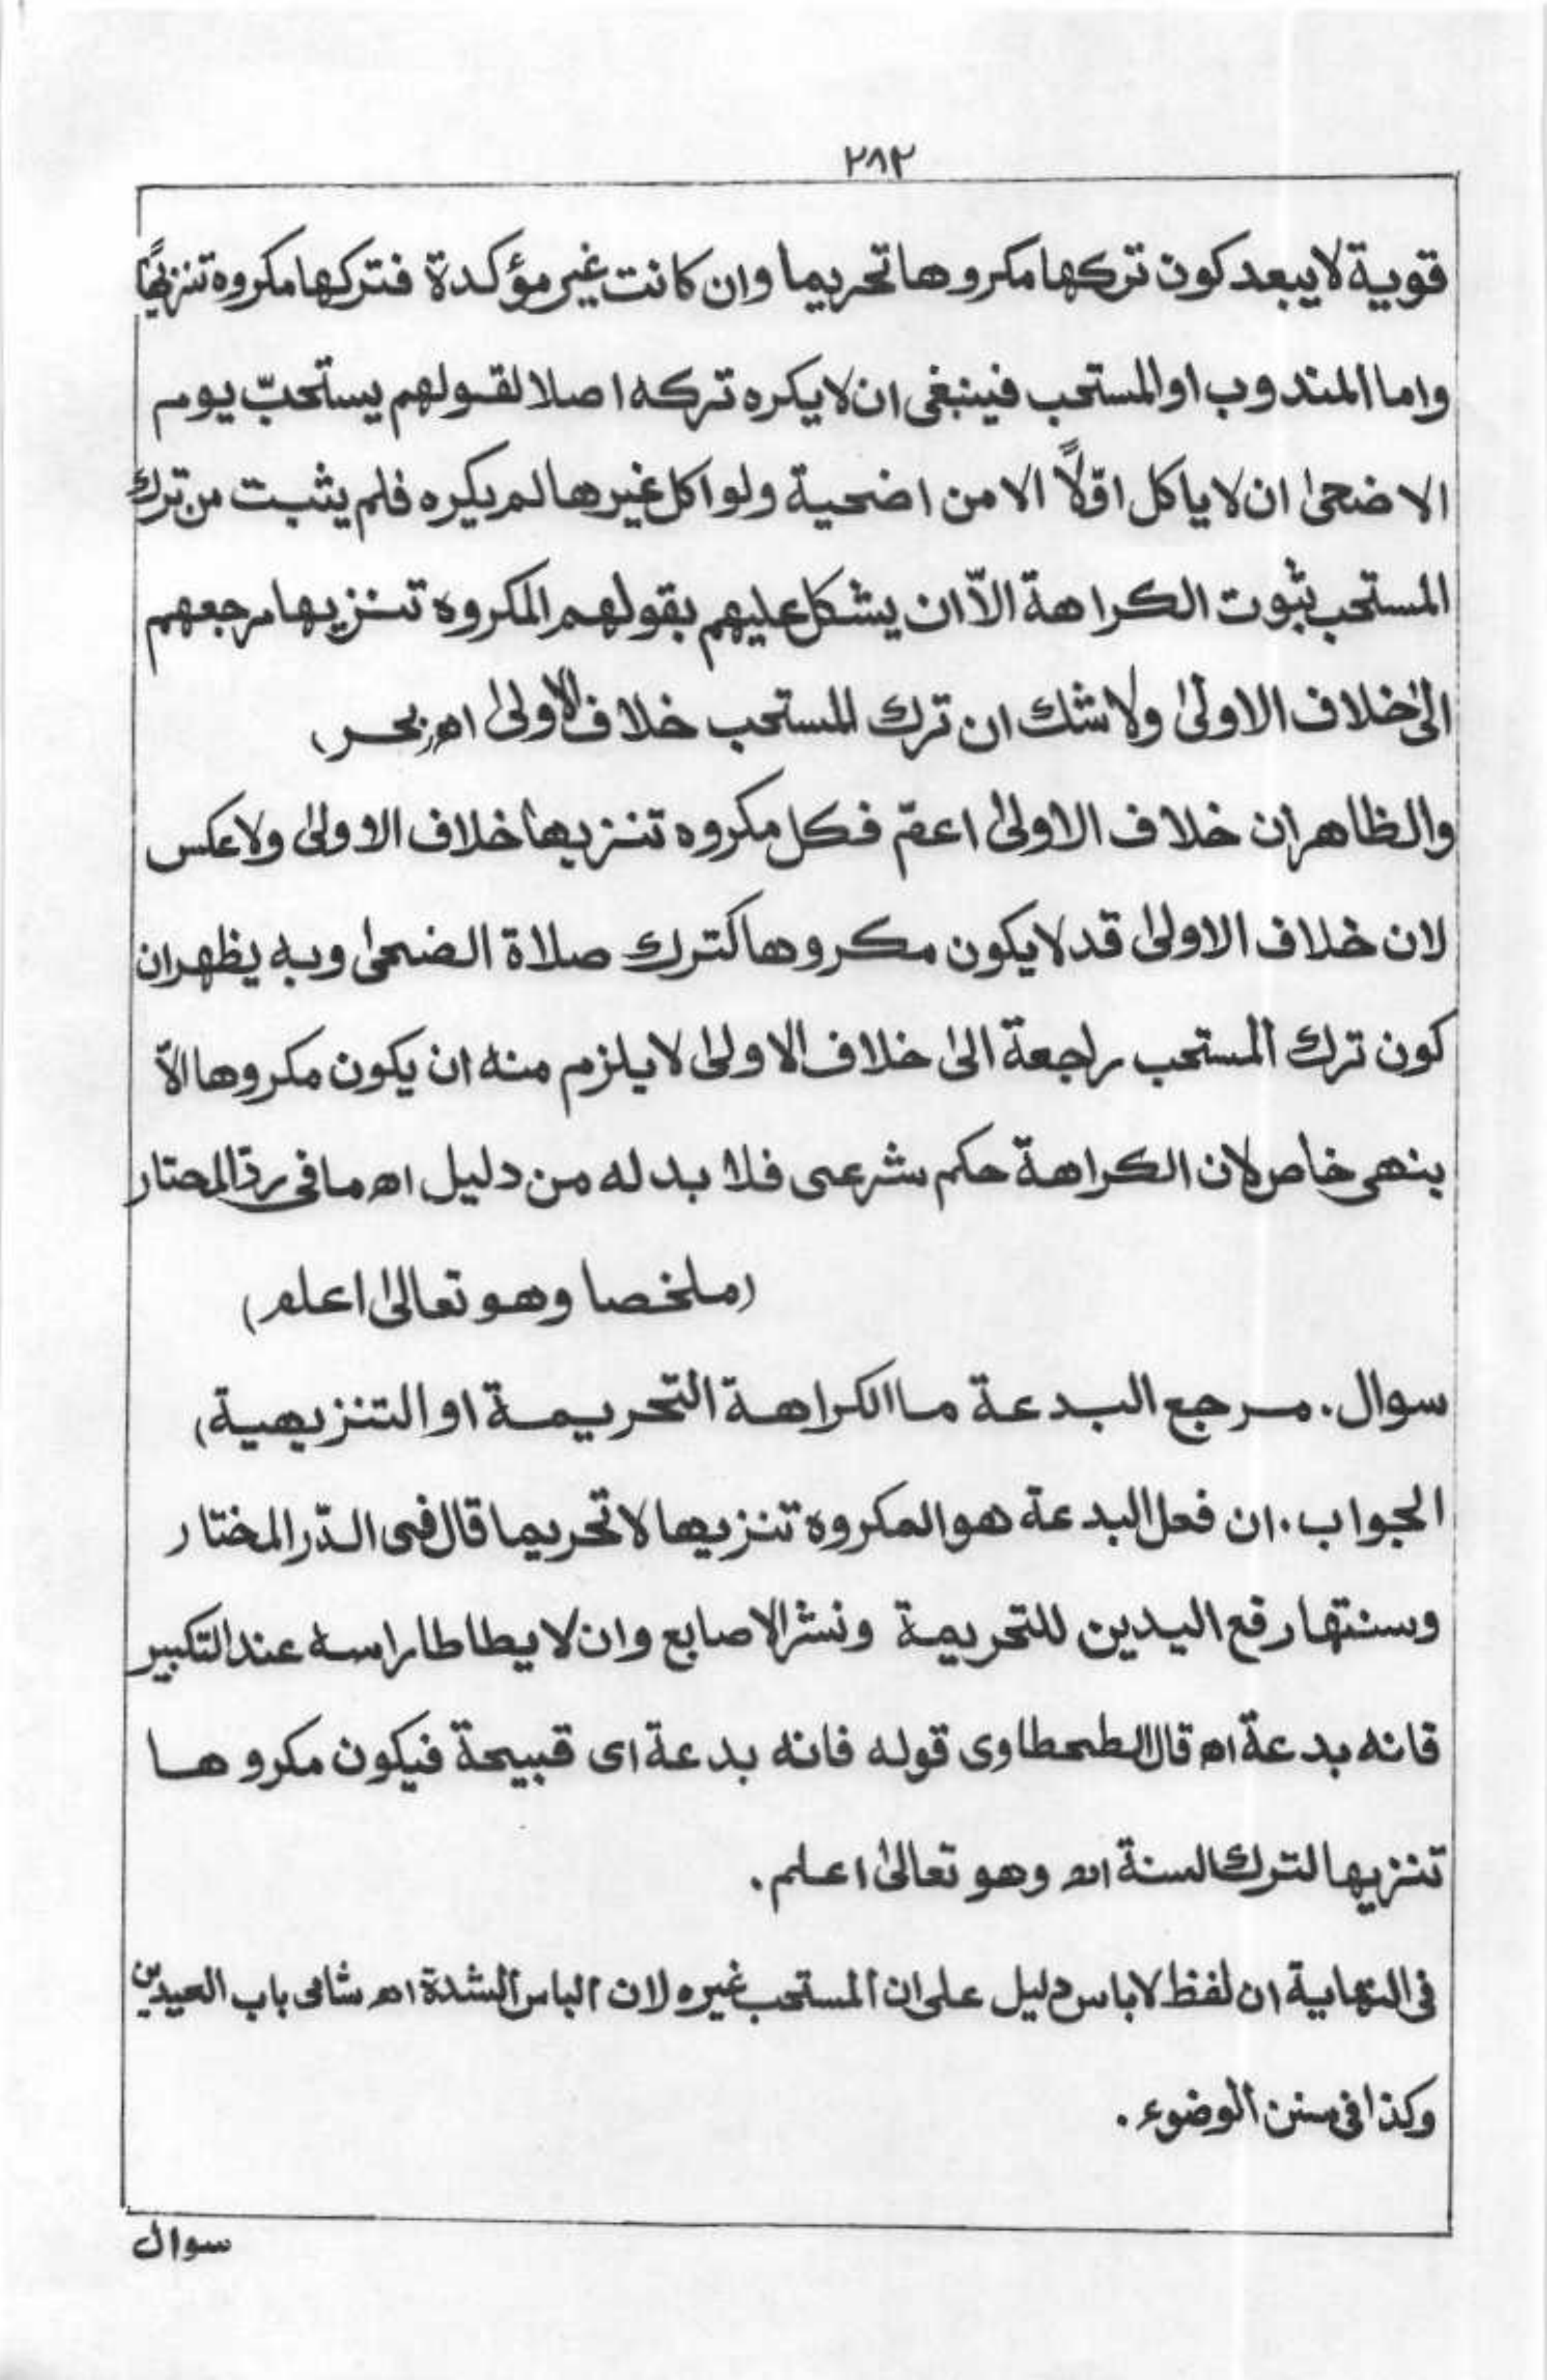 ٢٨٢
قوية لا يبعد كون تركها مكروها تحريما وان كانت غير مؤكدة فتركها مكروه تنزيهًا
واما المندوب او المستحب فينبغى ان لا يكره تركه اصلا لقولهم يستحبّ يوم
الاضحىٰ ان لا ياكل اوّلاً الا من اضحية ولو اكل غيرها لم يكره فلم يثبت من ترك
المستحب ثبوت الكراهة الاّ ان يشكل عليهم بقولهم المكروه تنزيها مرجعهم
الىٰ خلاف الاولىٰ ولا شك ان ترك المستحب خلاف الاولىٰ اھ بحر،
والظاهر ان خلاف الاولىٰ اعمّ فكل مكروه تنزيها خلاف الاولىٰ ولا عكس
لان خلاف الاولىٰ قد لا يكون مكروها كترك صلاة الضحىٰ وبه يظهر ان
كون ترك المستحب راجعة الىٰ خلاف الاولىٰ لا يلزم منه ان يكون مكروها الاّ
بنهى خاص لان الكراهة حكم شرعى فلا بد له من دليل اھ ما فى ردّ المحتار
(ملخصا وهو تعالىٰ اعلم)
سوال. مرجع البدعة ما الكراهة التحريمة او التنزيهية،
الجواب. ان فعل البدعة هو المكروه تنزيها لا تحريما قال فى الدّر المختار
وسنتها رفع اليدين للتحريمة ونشر الاصابع وان لا يطاطا راسه عند التكبير
فانه بدعة اھ قال الطحطاوى قوله فانه بدعة اى قبيحة فيكون مكروها
تنزيها لترك السنة اھ وهو تعالىٰ اعلم.
فى النهاية ان لفظ لا باس دليل على ان المستحب غيره لان الباس الشدة اھ شامى باب العيدين
وكذا فى سنن الوضوء.
سوال